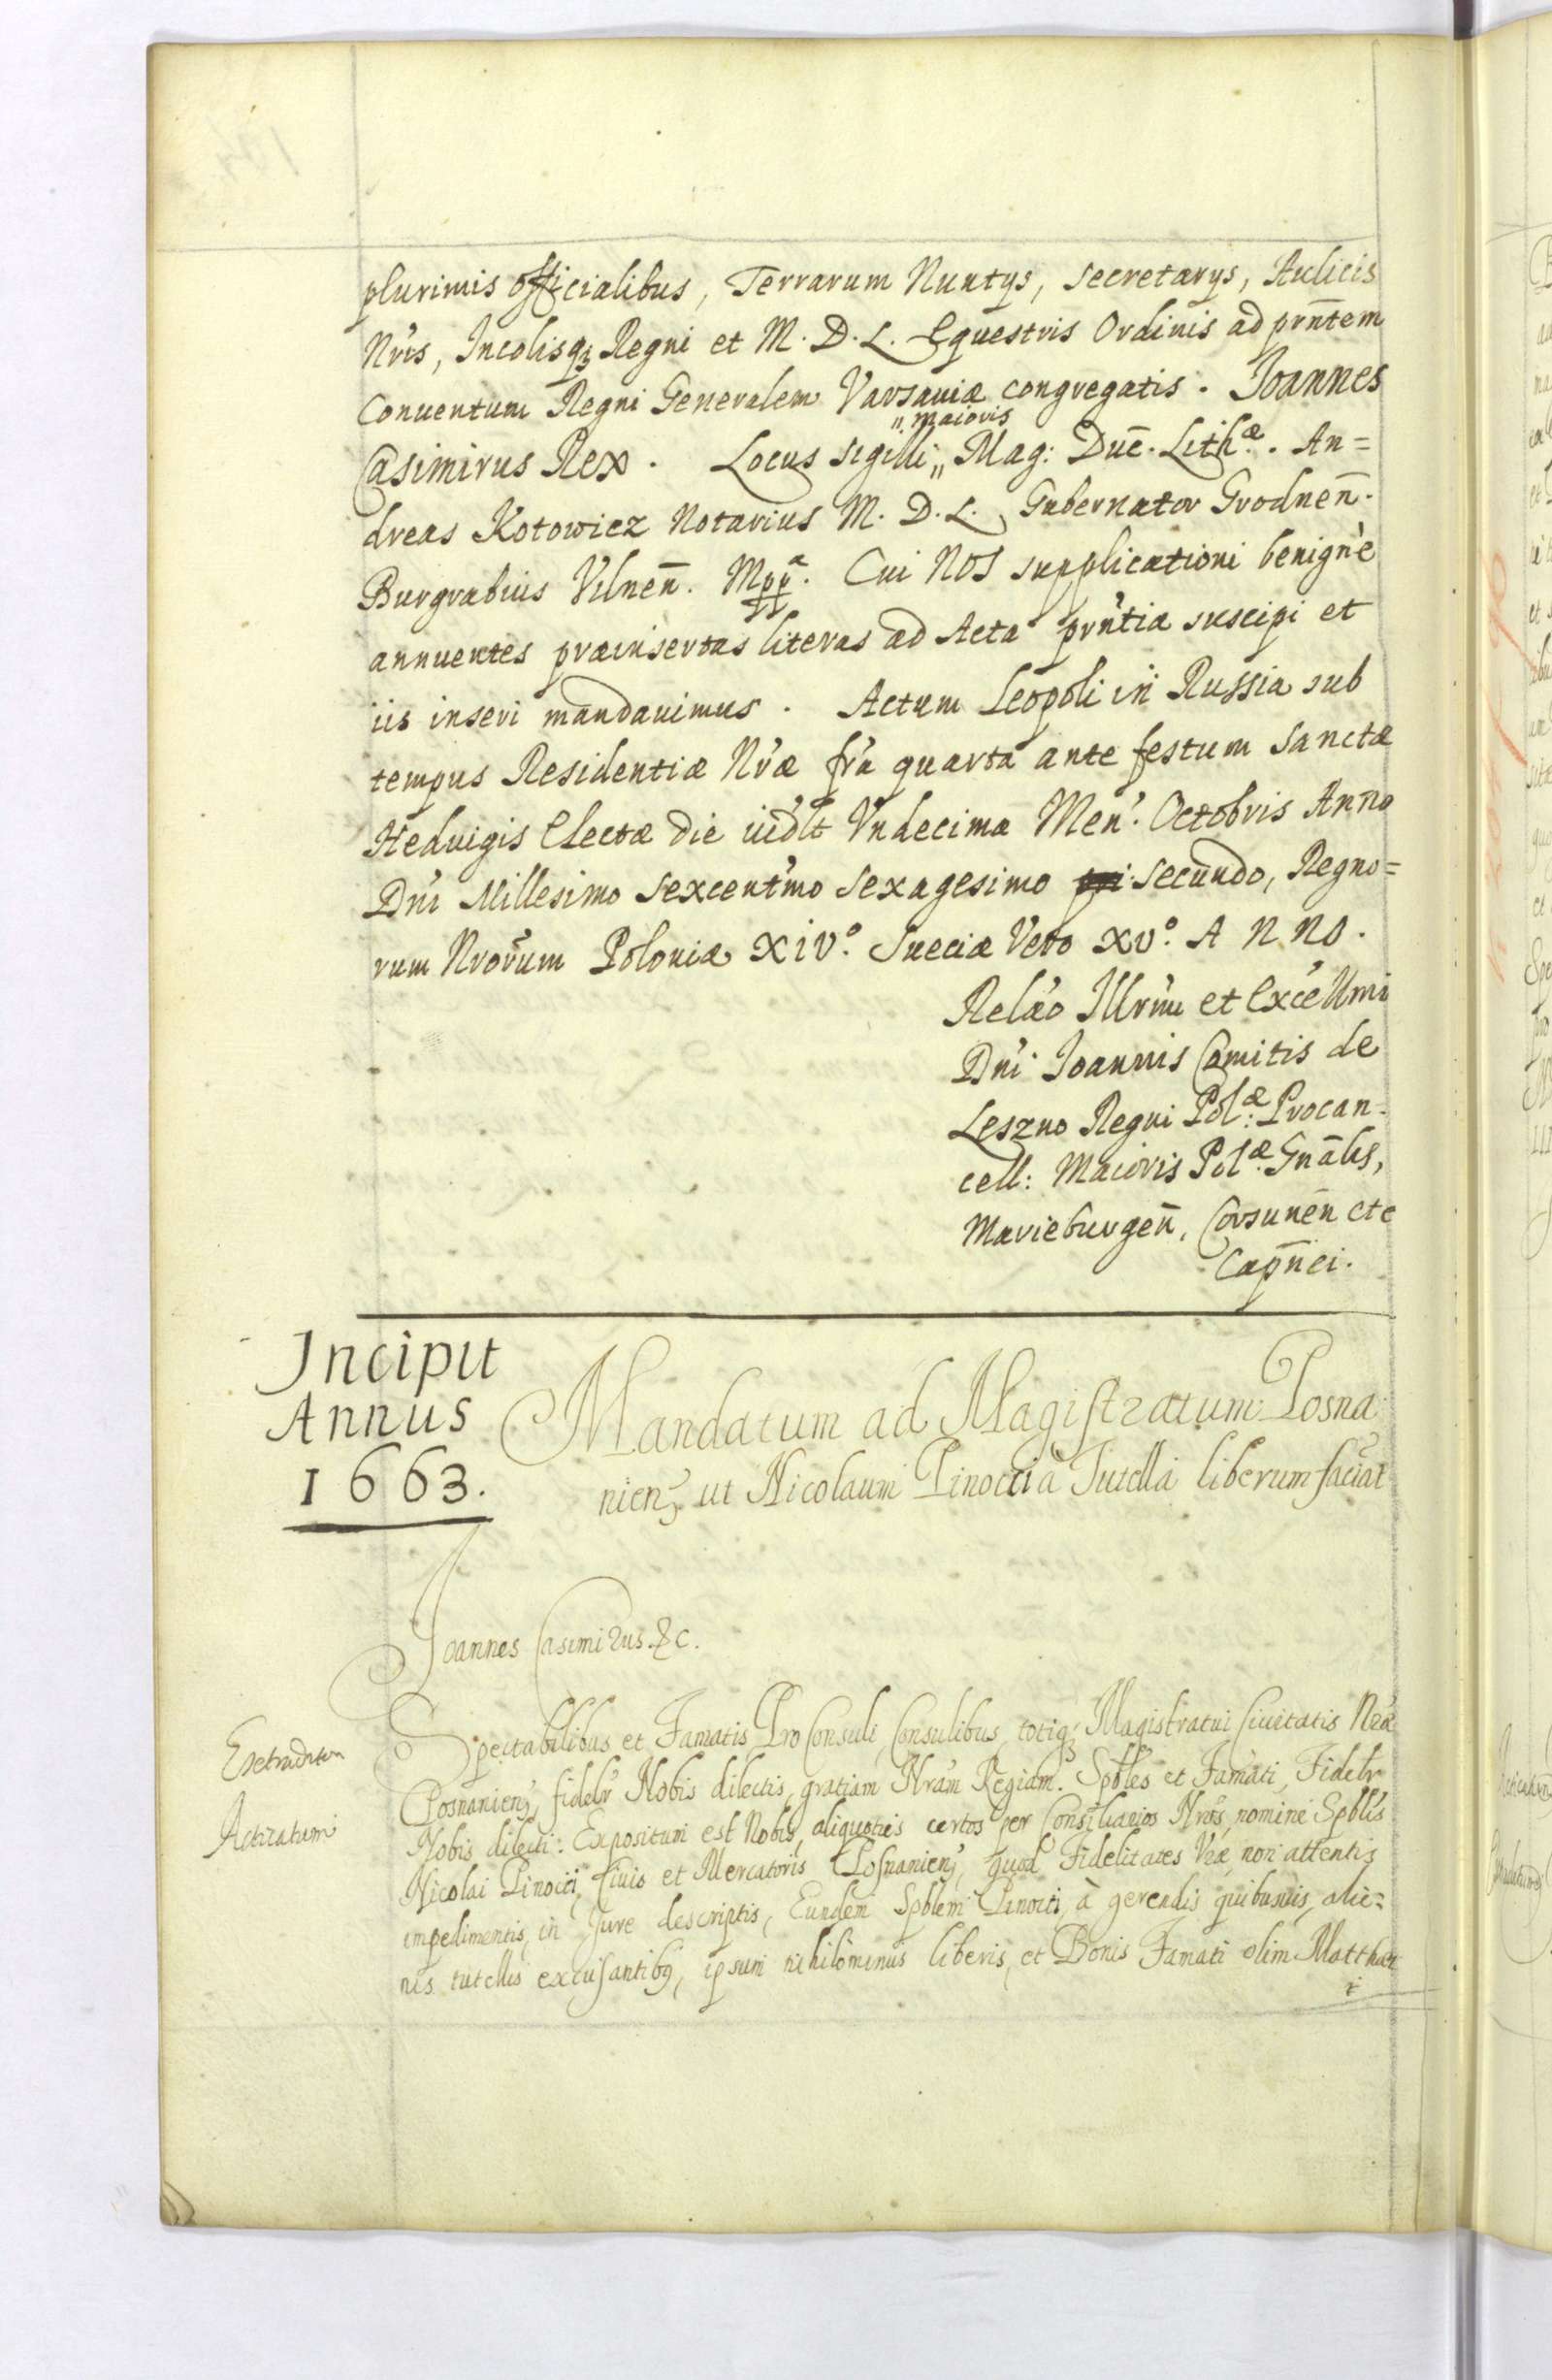 plurimis officialibus, Terrarum Nuntys, secretarys, Aulicis
Nris, Incolisq; Regni et M. D. L. Equestris Ordinis ad prñtem
Conuentum Regni Generalem Varsauiæ congregatis. Joannes
Casimirus Rex. Locus sigilli „ Maioris „ Mag: Duc̃. Lith.æ. An=
dreas Kotowicz Notarius M. D. L. Gubernator Grodneñ.
Burgrabius Vilneñ. Mppa. Cui Nos supplicationi benignè
annuentes præinsertas literas ad Acta prntia suscipi et
iis inseri mandauimus. Actum Leopoli in Russia sub
tempus Residentiæ Nræ fra quarta ante festum Sanctæ
Heduigis Electæ die uidlt Vndecima Men. Octobris Anno
Dni Millesimo sexcentmo sexagesimo secundo, Regno=
rum Nrorum Poloniæ XIV.o Sueciæ Vero XV.o ANNO.
Relao Illrmi et Excellmi
Dni Joannis Comitis de
Leszno Regni Pol:æ Procan-
cell: Maioris Pol.æ Gnalis,
Marieburgeñ, Corsuneñ etc
Capñei.
Incipit
Annus
1663.
Mandatum ad Magistratum Posna
nien; ut Nicolaum Pinocci à Tutella liberum faciat
Joannes Casimirus. &c.
Extraditum
Acticatum
Spectabilibus et Famatis Pro Consuli, Consulibus, totiq; Magistratui Ciuitatis Nræ
Posnanien; fidelr Nobis dilectis, gratiam Nram Regiam. Spbles et Famati, Fidelr
Nobis dilecti: Expositum est Nobis, aliquoties certos per Consiliarios Nros, nomine Spblis
Nicolai Pinocci, Ciuis et Mercatoris Posnanien; quod Fidelitates Vræ, non attentis
impedimentis, in Jure descriptis, Eundem Spblem Pinocci, à gerendis quibusuis, alie=
nis tutellis excusantibq, ipsum nihilominus liberis, et Bonis Famati olim Matthæi